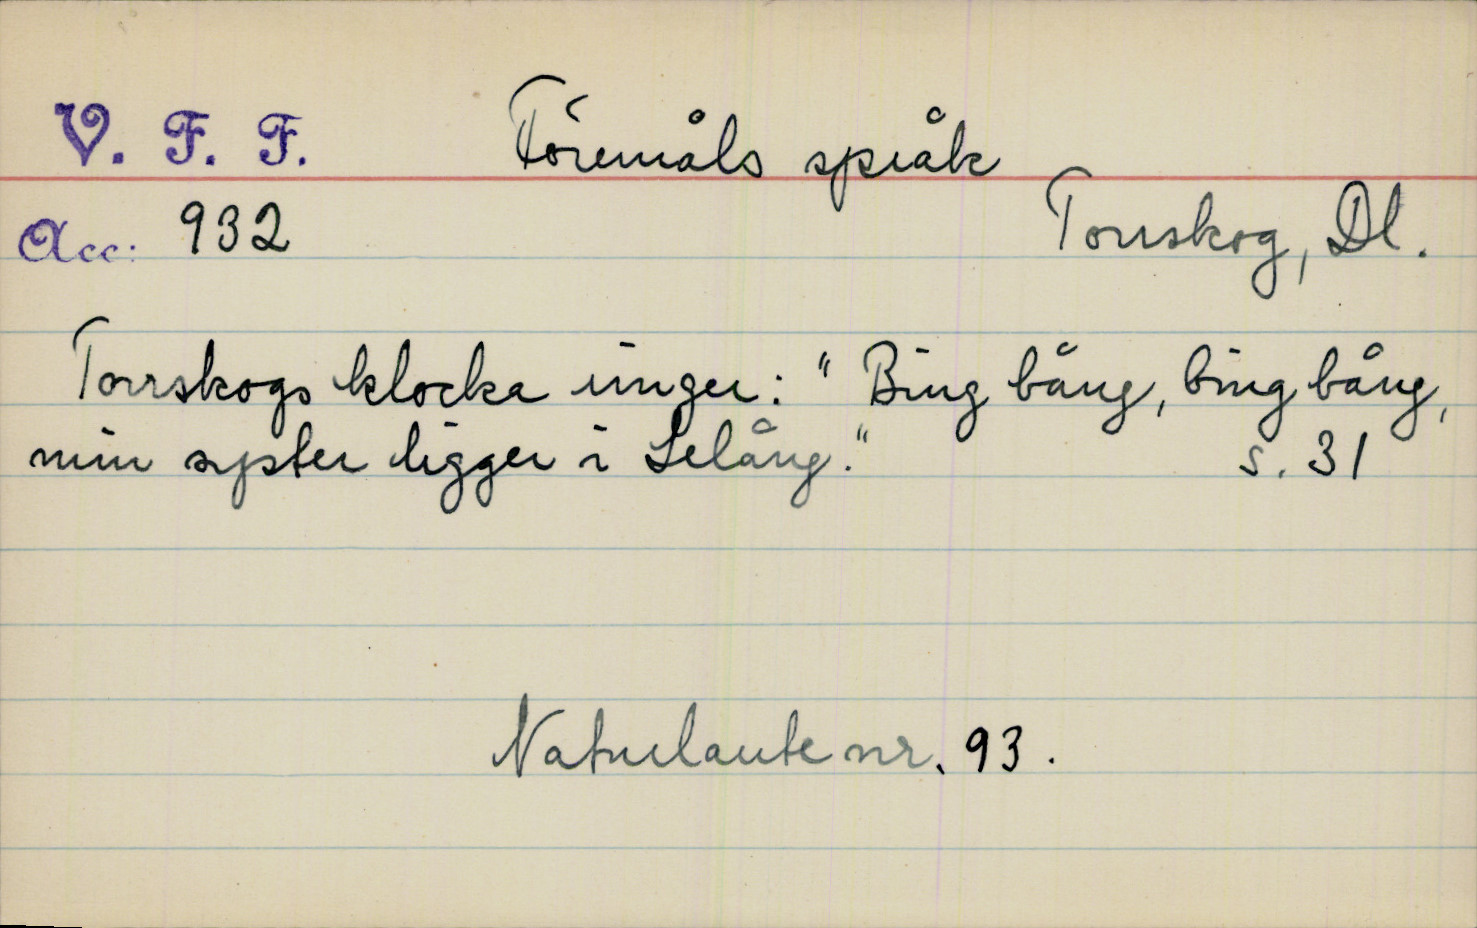 V. F. F. Föremåls språk
Acc: 932 Torrskog, Dl.
Torrskogs klocka ringer: "Bing bång, bing bång,
min syster ligger i Lelång." s. 31
Naturlaute nr. 93.